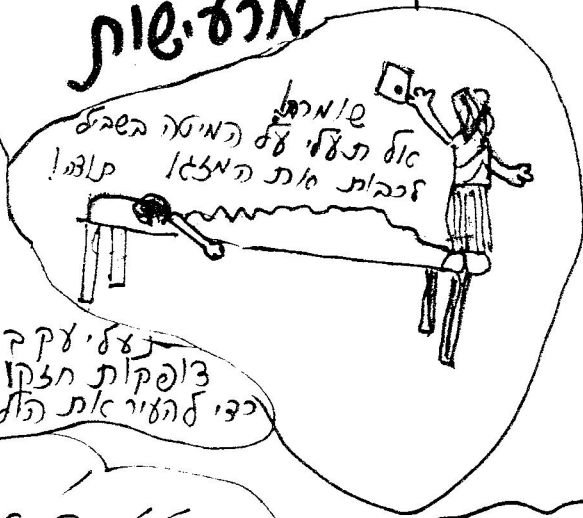 מרעישות
שומרת!
אל תעלי על המיטה בשביל
לכבות את המזגן תודה!
נעלי עקב
דופקות חזק
כדי להעיר את